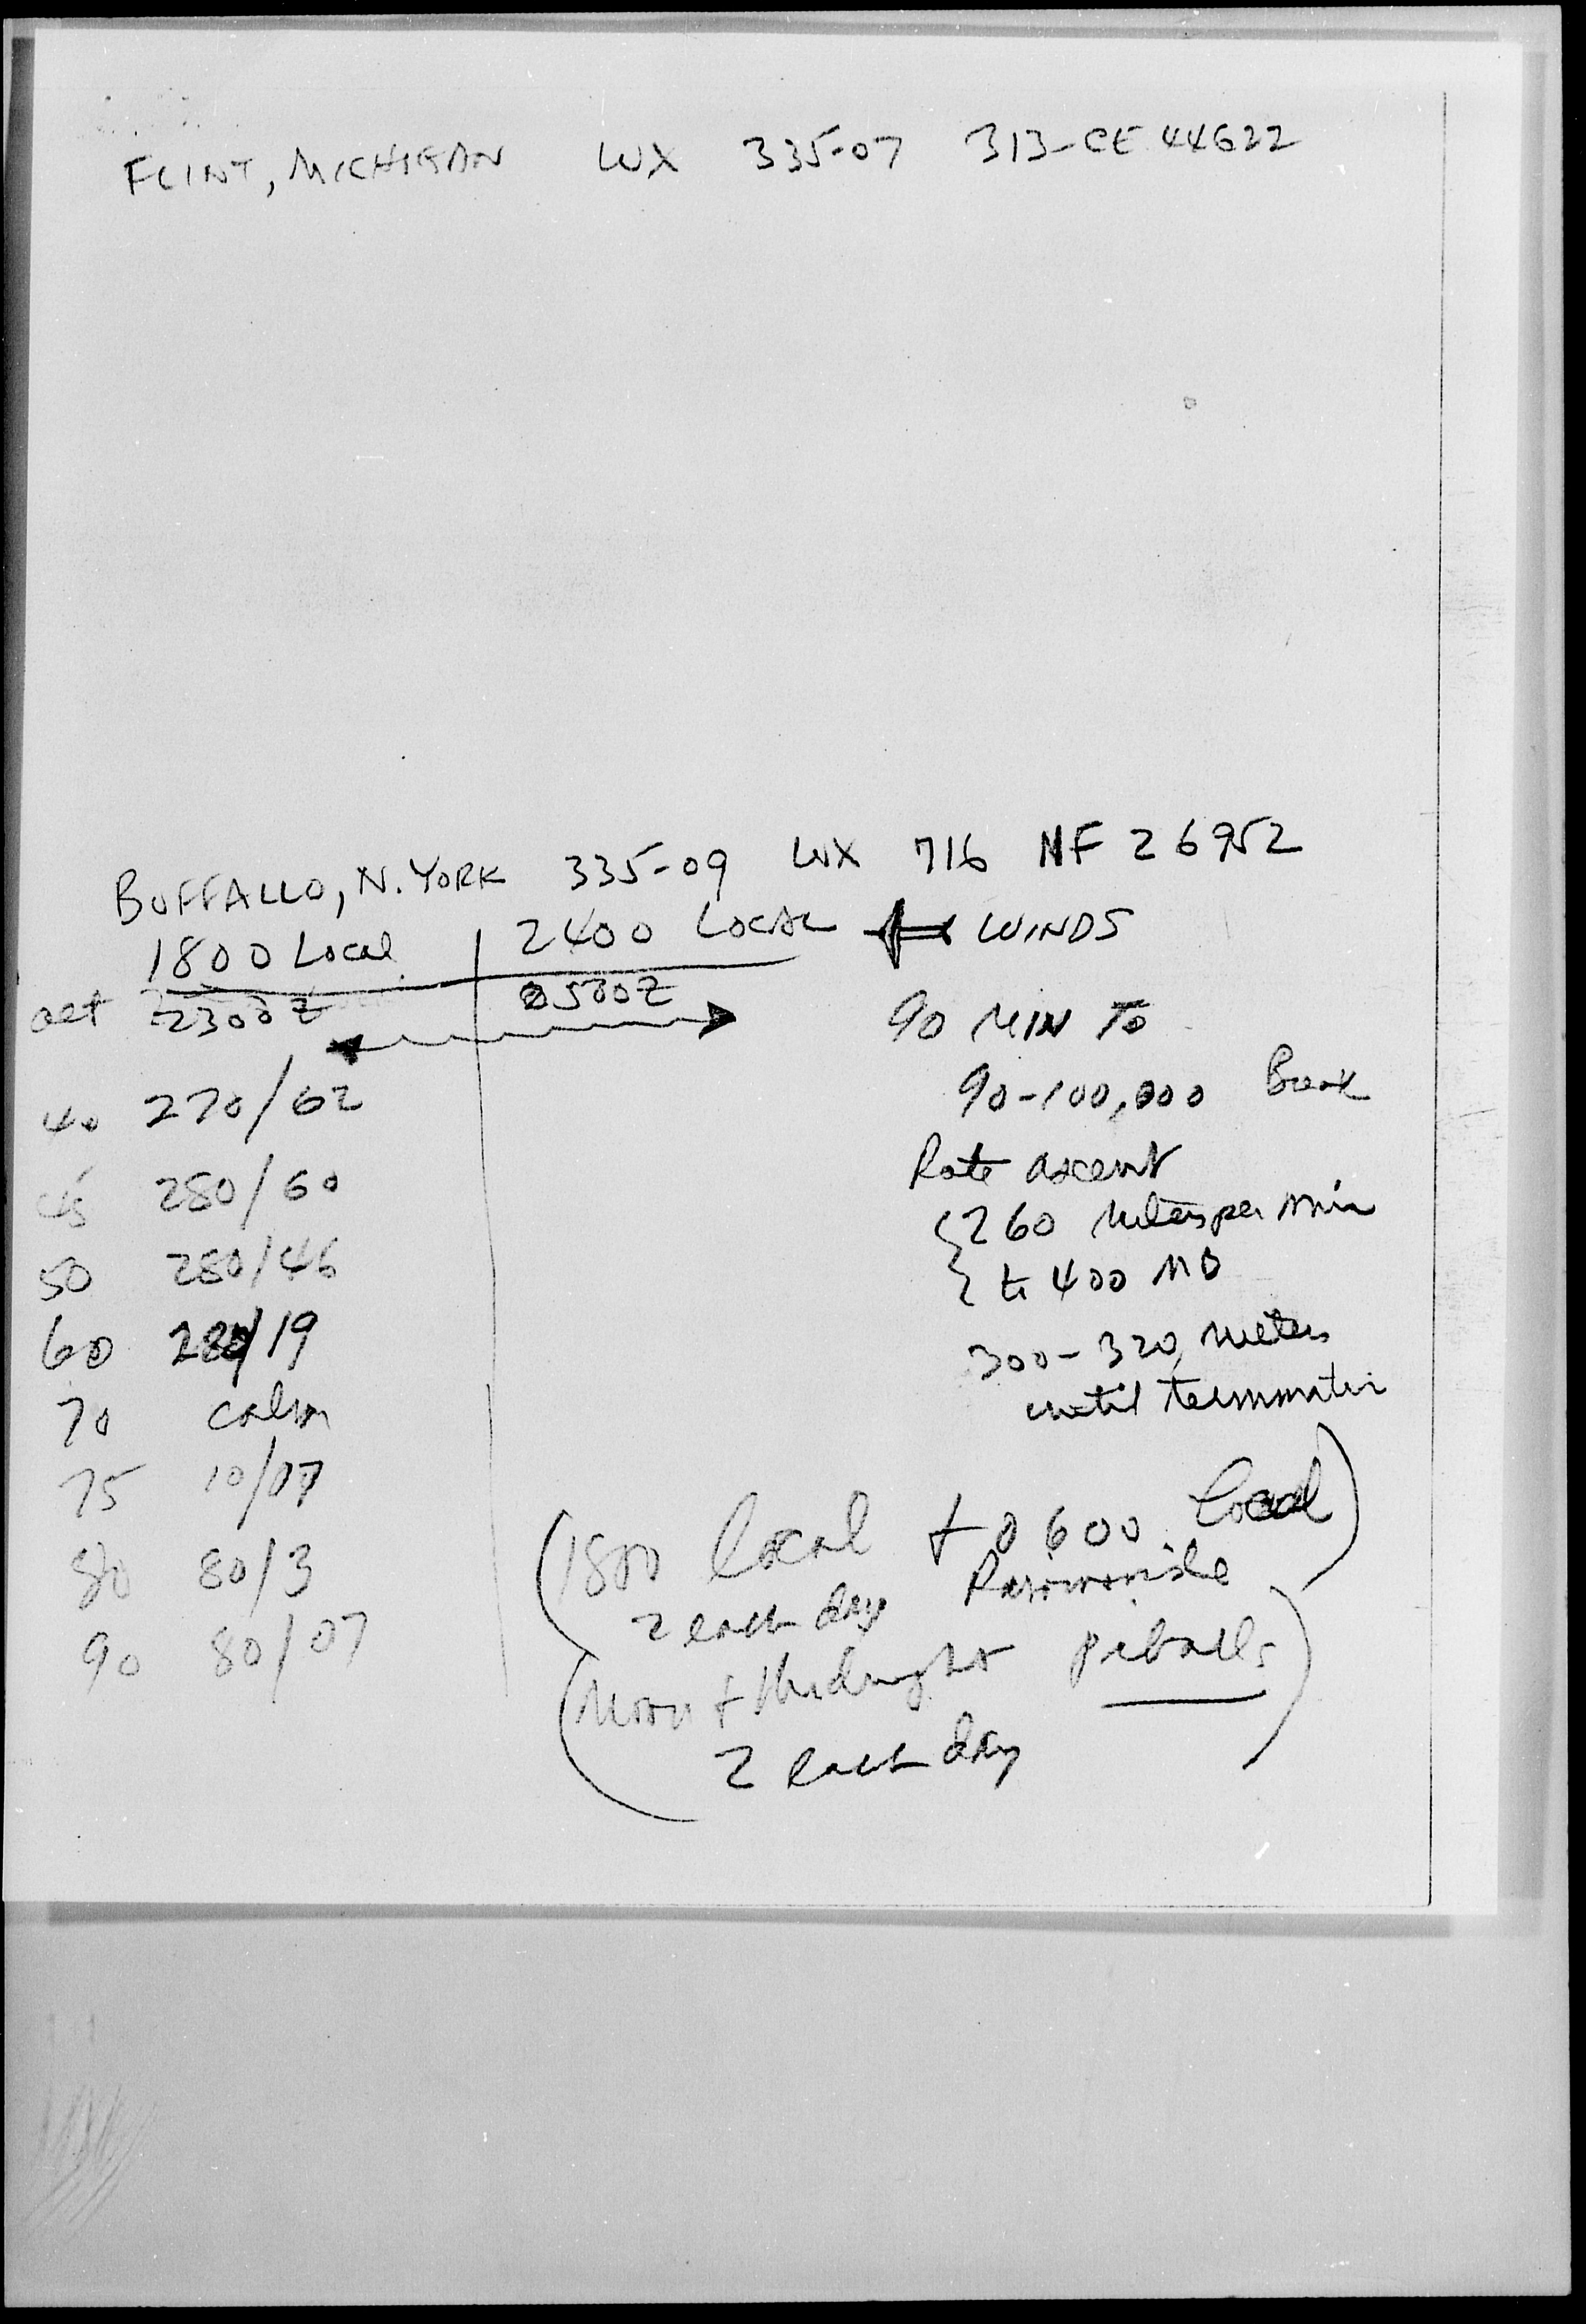 FLINT, MICHIGAN WX 335-07 313-CE 44622
BUFFALLO, N. YORK 335-09 WX 716 NF 26952
1800 Local 2400 LOCAL WINDS
alt 2300Z 0500Z
40 270/62
45 280/60
50 280/46
60 280/19
70 calm
75 10/07
80 80/3
90 80/07
90 MIN TO
90-100,000
Rate ascent
260 meters per min
to 400 MB
300-320 meters
until termination
(1800 local + 0600 local)
2 each day
(Noon + Midnight pibals)
2 each day